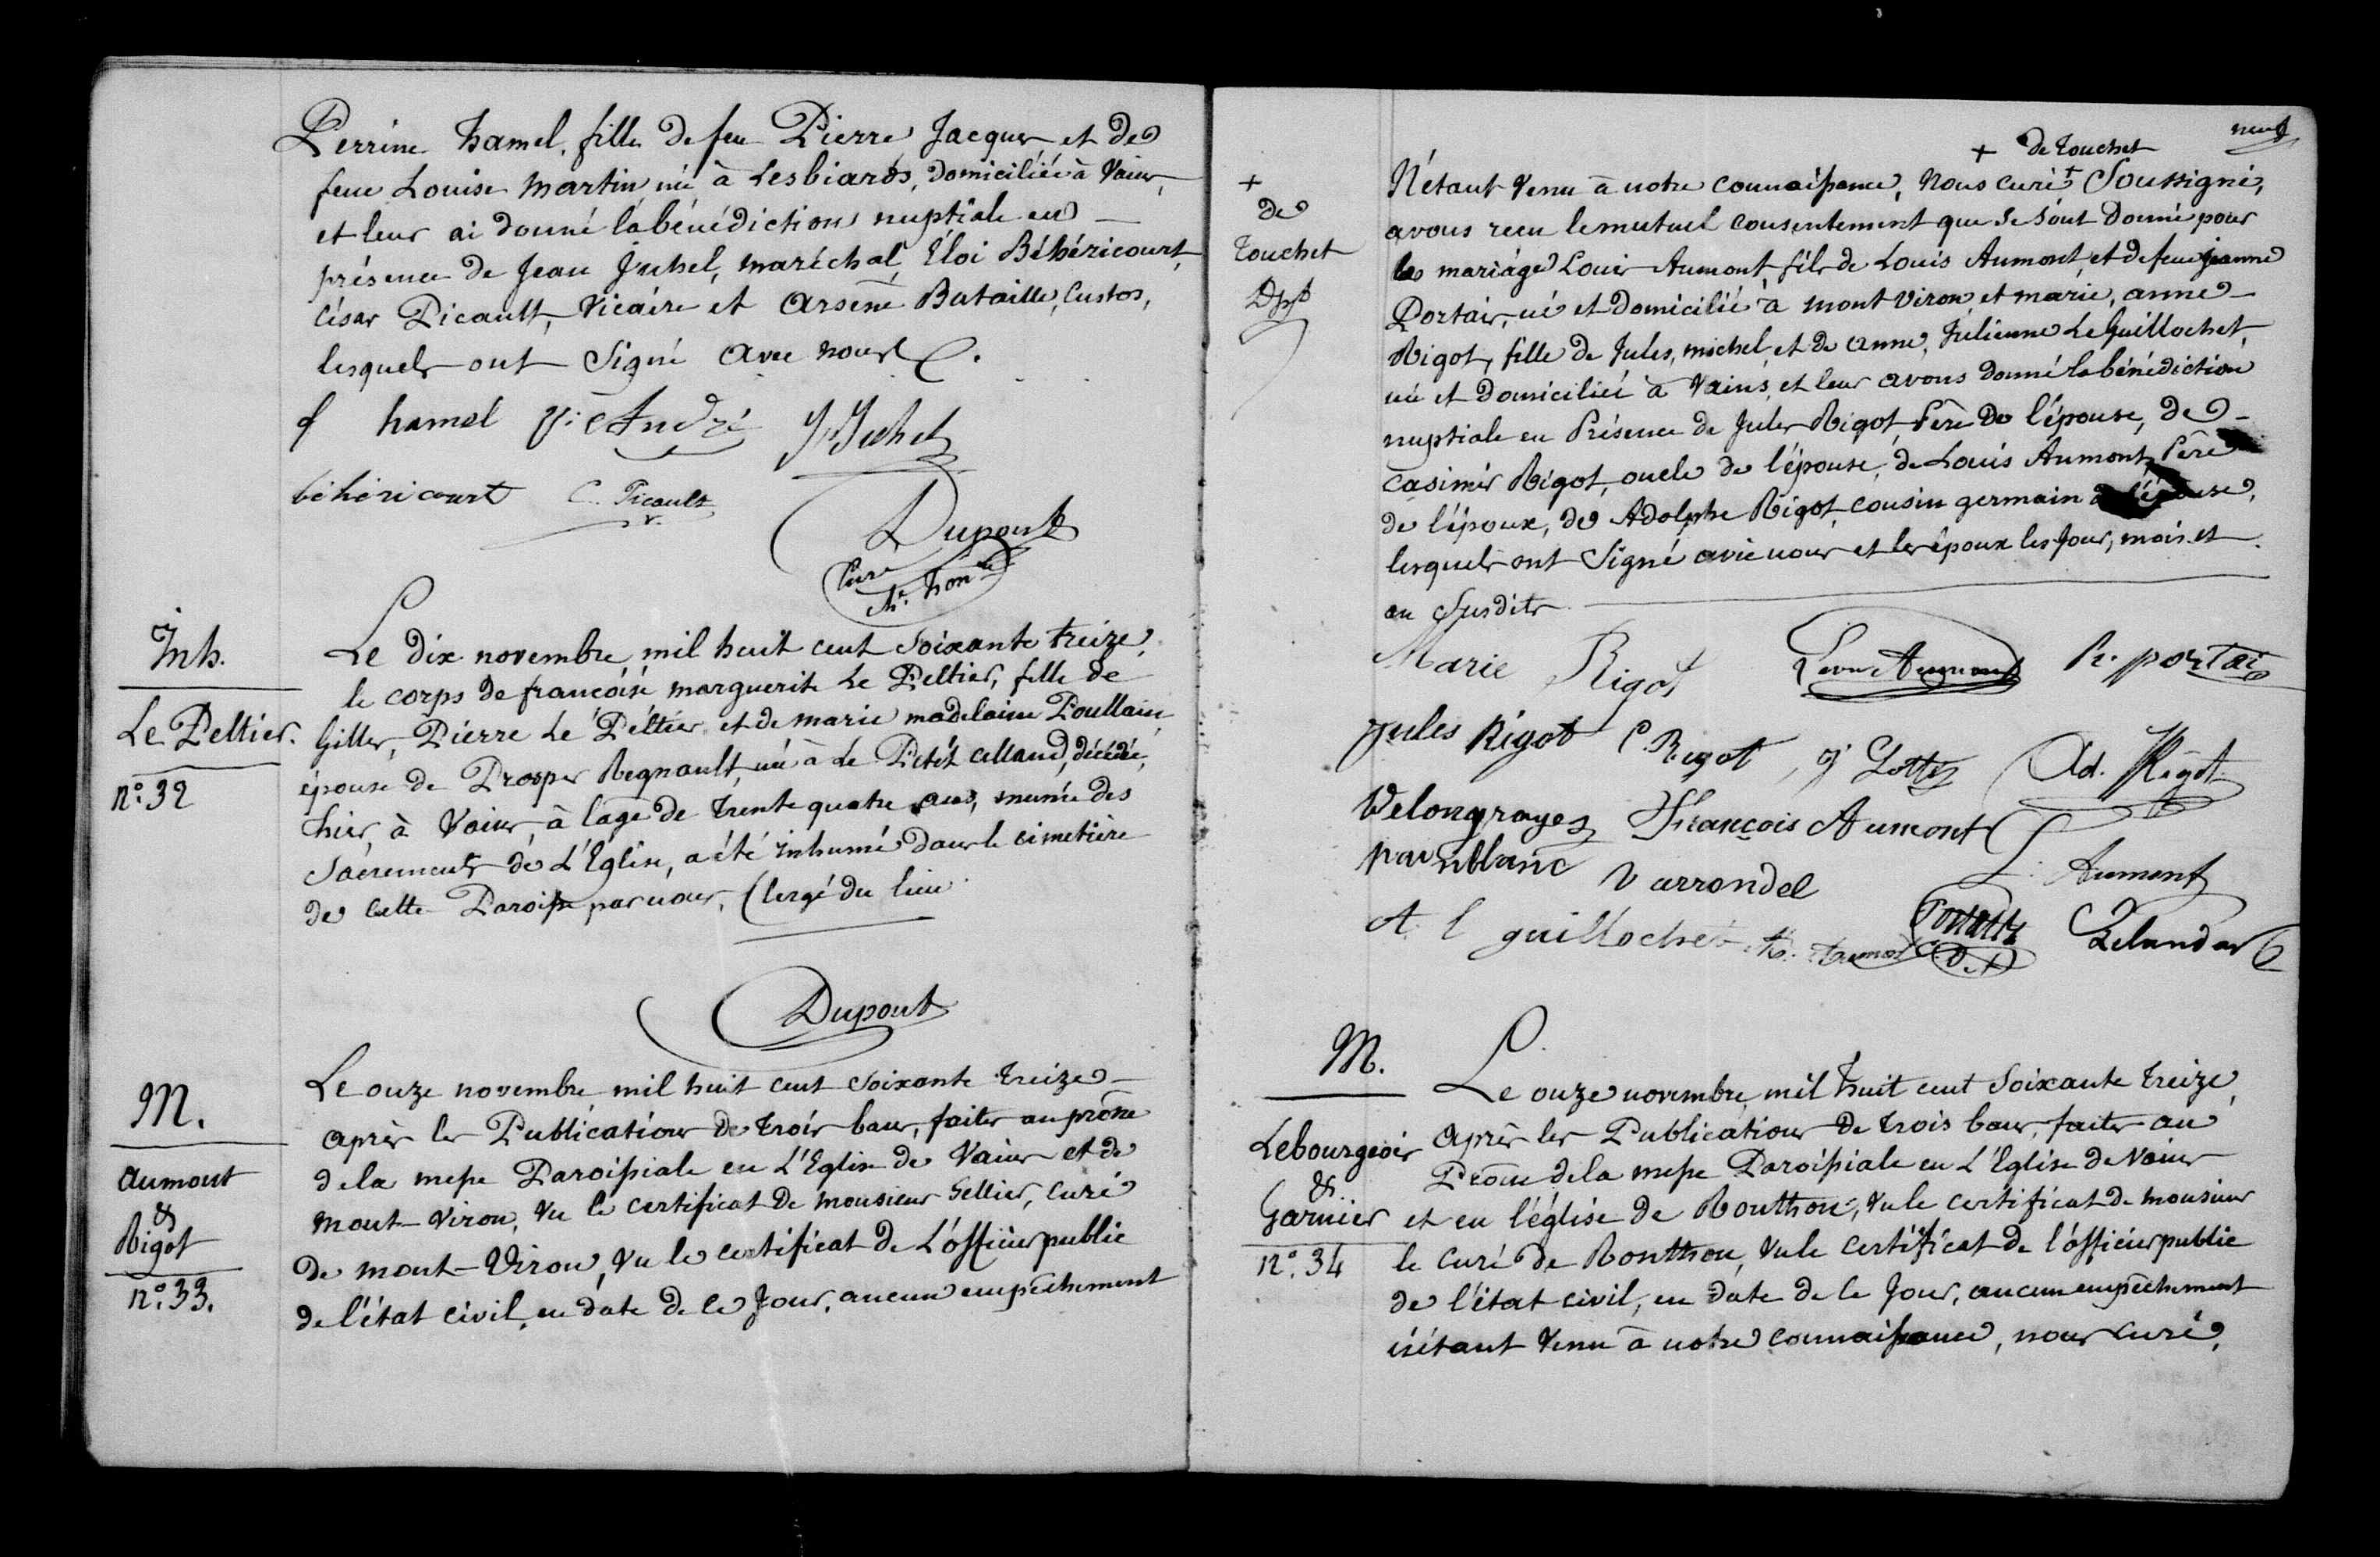 Perrine hamel, fille de feu Pierre Jacques et de
feue Louise martin née à Lesbiards, domiciliée à Vains,
et leur ai donné la bénédiction nuptiale en
présence de Jean Juhel, maréchal, Éloi Béhéricourt,
César Picault, Vicaire et Arsène Bataille, Custos,
lesquels ont Signé avec nous.
f hamel V. André J. Juhel
béhéricourt C. Picault
v.
Dupont
Curé
Ch. hon.re
Inh.
Le Peltier.
n°. 32
Le dix novembre, mil huit cent soixante treize,
le corps de françoise marguerite Le Peltier, fille de
Gilles, Pierre Le Peltier et de marie madelaine Poullain,
épouse de Prosper Regnault, née à Le Petit Celland, décédée,
hier, à Vains, à l'age de trente quatre ans, munie des
Sacrements de L'Église, a été inhumé dans le cimetière
de cette Paroisse par nous, Clergé du lieu.
Dupont
M.
Aumont
&
Rigot
n°. 33.
Le onze novembre mil huit cent soixante treize
après les Publications de trois bans, faites au prône
de la messe Paroissiale en L'Eglise de Vains et de
mont-Viron, Vu le certificat de monsieur Sellier, curé
de mont-Viron, Vu le certificat de L'officier public
de l'état civil, en date de ce Jour, aucun empêchement
neuf
+ de Touchet
+
de
Touchet
Dpt
N'étant Venu à notre connaissance, Nous curé + Soussigné,
avons recu le mutuel consentement que se sont donné pour
le mariage Louis Aumont, fils de Louis Aumont, et de feue jeanne
Portais, né et domicilié à mont Viron et marie, anne
Rigot, fille de Jules, michel et de anne, Julienne Le Guillochet,
née et domiciliée à Vains, et leur avons donné la bénédiction
nuptiale en Présence de Jules Rigot Père de l'épouse, de
Casimir Rigot, oncle de l'épouse, de Louis Aumont, Père
de l'époux, de Adolphe Rigot, cousin germain de l'épouse,
lesquels ont Signé avec nous et les époux les Jour, mois et
an Susdits
Marie Rigot Aumont portai
Jules Rigot C. Rigot Ad. Rigot
Velongrayes François Aumont
painblanc Varrondel L. Aumont
A. l guillochet
M.
Lebourgeois
&
Garnier
n°. 34
Le onze novembre, mil huit cent soixante treize,
après les Publications de trois bans, faites au
Prône de la messe Paroissiale en L'Eglise de Vains
et en l'église de Ronthon, Vu le certificat de monsieur
le curé de Ronthon, Vu le certificat de l'officier public
de l'état civil, en date de ce Jour, aucun empêchement
n'étant Venu à notre connaissance, nous curé,